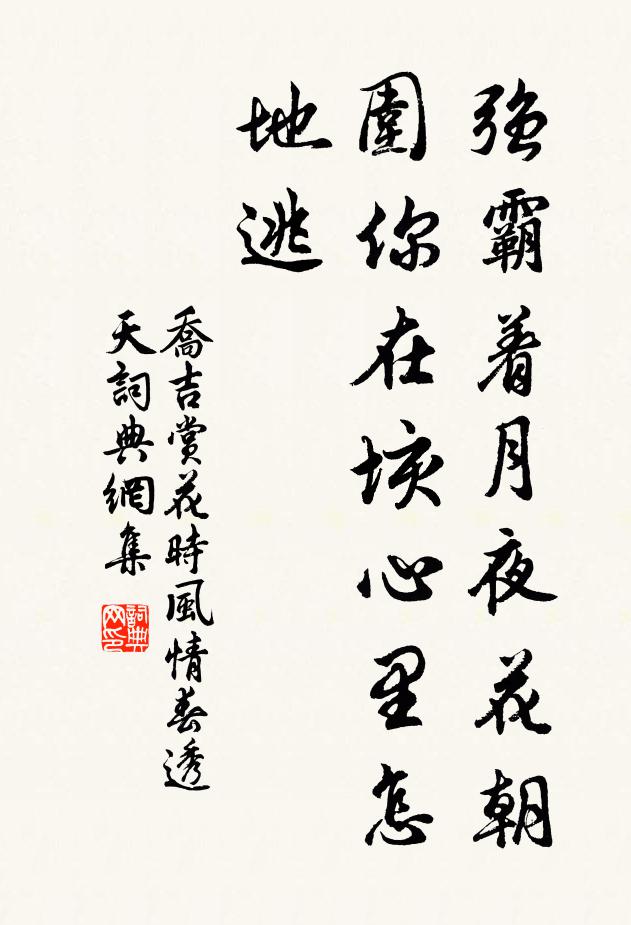 強霸着月夜花朝
圍你在垓心里怎
地逃
喬吉賞花時風情春透
天詞典網集
詞典網印